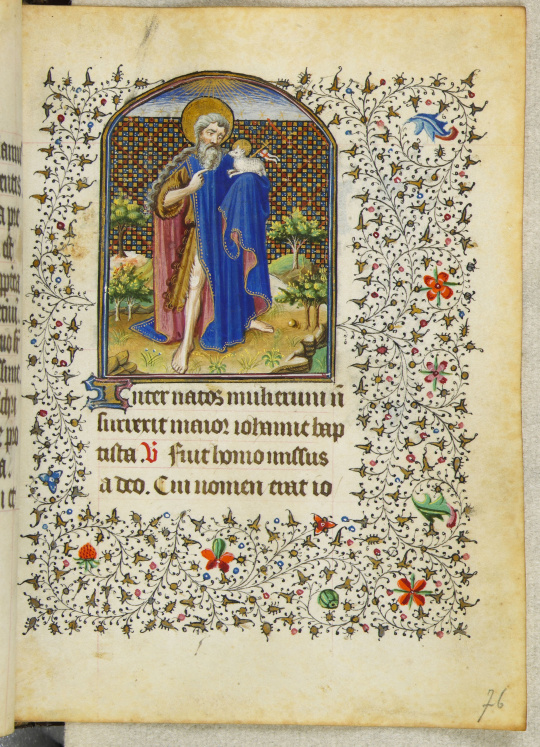 Inter natos mulierum n̄
surrexit maior iohanne bap
tista V Fuit homo missus
a deo. Cui nomen erat io
76